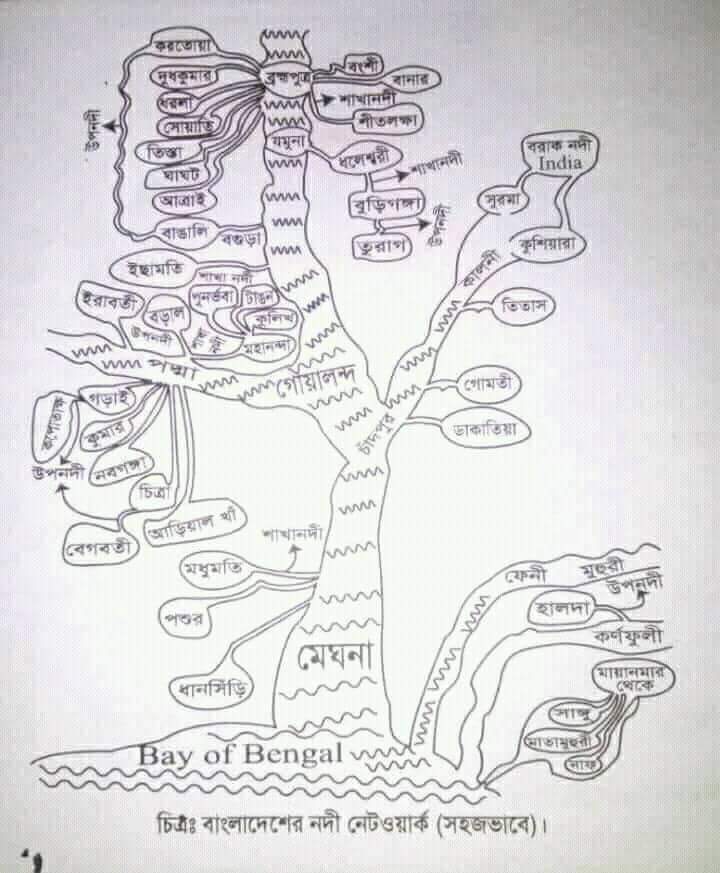 করতোয়া
দুধকুমার
ধরলা
সোয়াতি
তিস্তা
ঘাঘট
আত্রাই
বাঙালি
বগুড়া
উপনদী
ব্রহ্মপুত্র
বংশী
বানার
শাখানদী
শীতলক্ষা
যমুনা
ধলেশ্বরী
শাখানদী
বুড়িগঙ্গা
উপনদী
তুরাগ
বরাক নদী
India
সুরমা
কুশিয়ারা
কালনী
তিতাস
গোমতী
ডাকাতিয়া
চাঁদপুর
ইছামতি
শাখা নদী
ইরাবতী
বড়াল
উপনদী
পুনর্ভবা
টাঙন
কুলিখ
মহানন্দা
পদ্মা
গোয়ালন্দ
গড়াই
কপোতাক্ষ
কুমার
নবগঙ্গা
উপনদী
চিত্রা
আড়িয়াল খাঁ
বেগবতী
শাখানদী
মধুমতি
পশুর
ধানসিঁড়ি
মেঘনা
ফেনী
মুহুরী
উপনদী
হালদা
কর্ণফুলী
মায়ানমার
থেকে
সাঙ্গু
মাতামুহুরী
নাফ
Bay of Bengal
চিত্রঃ বাংলাদেশের নদী নেটওয়ার্ক (সহজভাবে)।